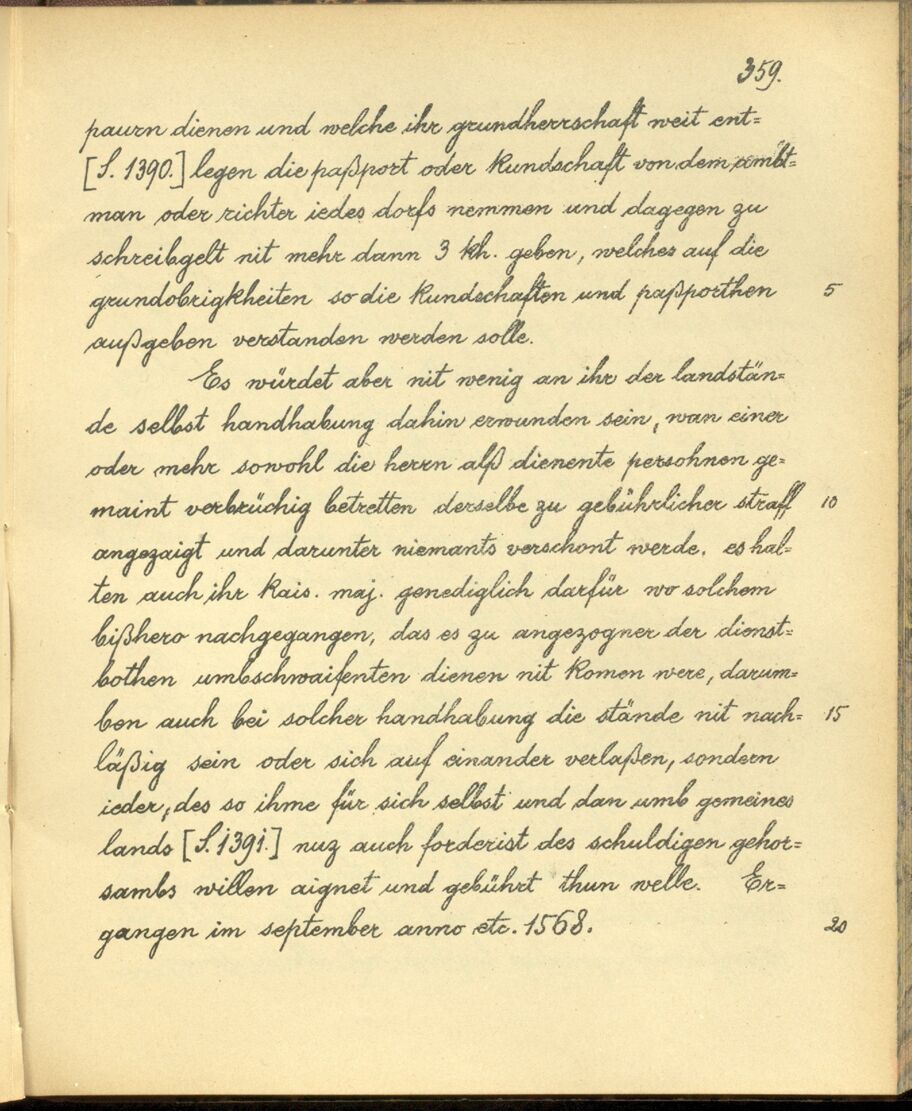 359.
paurn dienen und welche ihr grundherrschaft weit ent=
[S. 1390.] legen die paßport oder kundschaft von dem ambt=
man oder richter iedes dorfs nemmen und dagegen zu
schreibgelt nit mehr dann 3 kh. geben, welches auf die
grundobrigkheiten so die kundschaften und paßporthen 5
außgeben verstanden werden solle.
Es würdet aber nit wenig an ihr der landstän=
de selbst handhabung dahin erwunden sein, wan einer
oder mehr sowohl die herrn alß dienente persohnen ge=
maint verbrüchig betretten derselbe zu gebührlicher straff 10
angezaigt und darunter niemants verschont werde. es hal=
ten auch ihr kais. maj. genediglich darfür wo solchem
bißhero nachgegangen, das es zu angezogner der dienst=
bothen umbschwaifenten dienen nit komen were, darum=
ben auch bei solcher handhabung die stände nit nach= 15
läßig sein oder sich auf einander verlaßen, sondern
ieder, des so ihme für sich selbst und dan umb gemeines
lands [S. 1391.] nuz auch forderist des schuldigen gehor=
sambs willen aignet und gebührt thun welle. Er=
gangen im september anno etc. 1568. 20